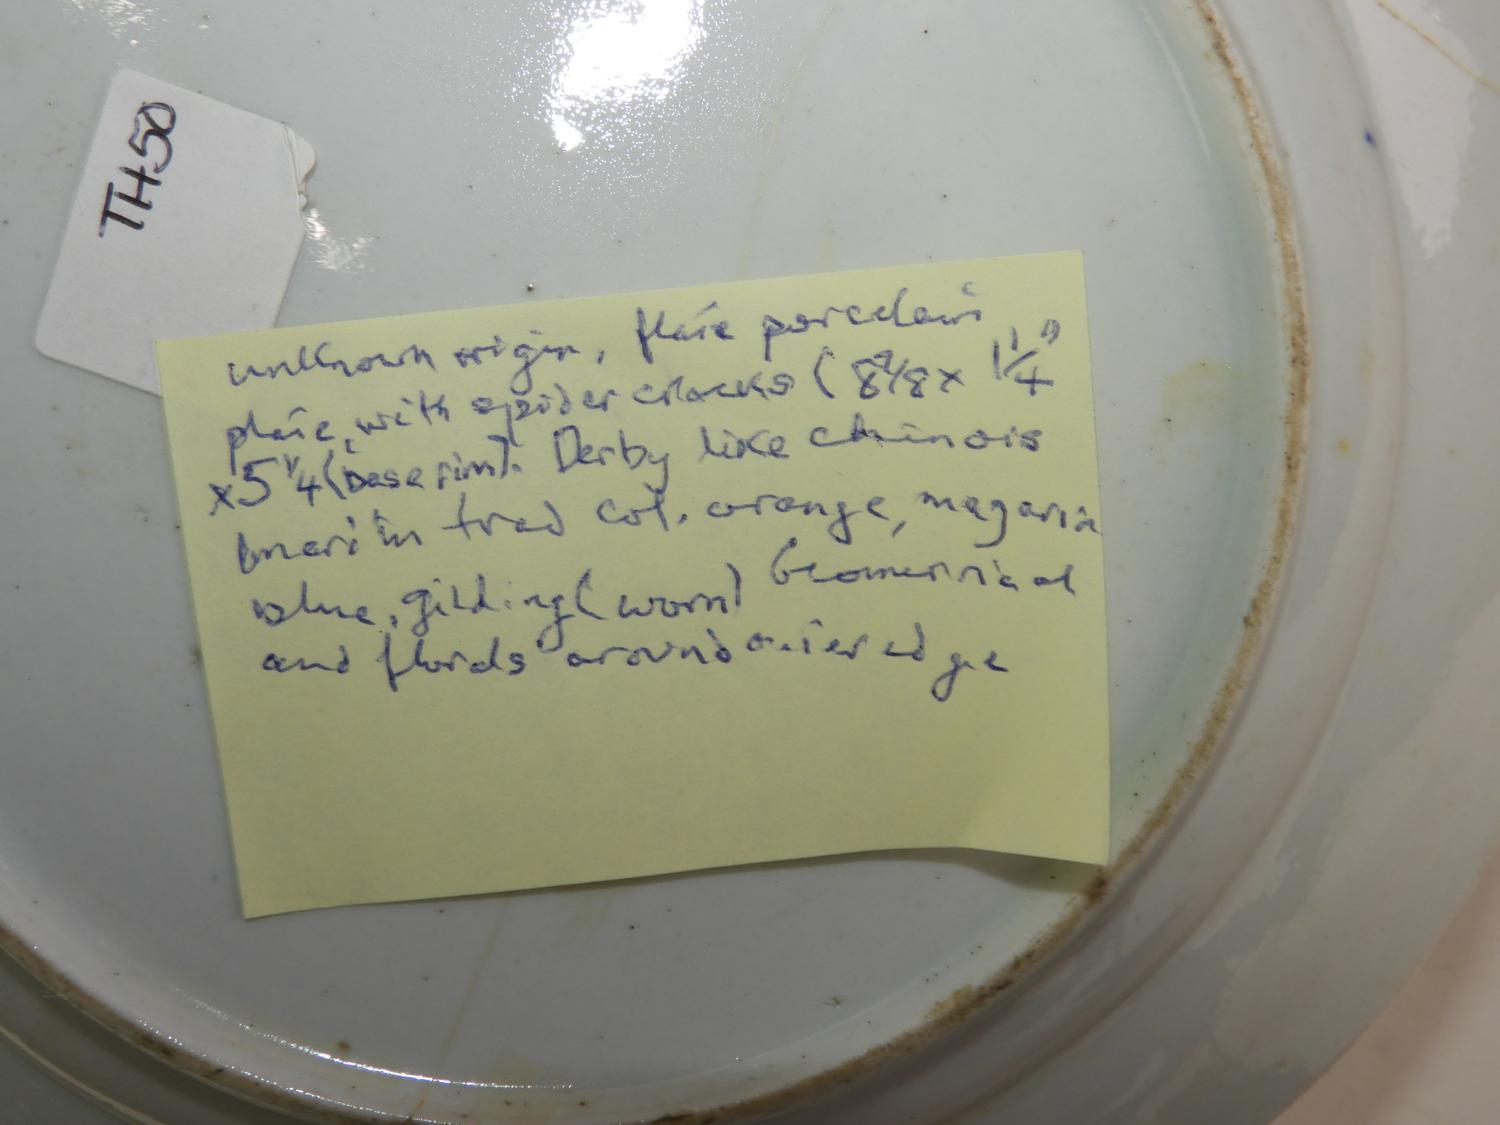 TH50
unknown origin, plate porcelain
plate, with spider cracks ( 8 7/8 x 1 1/4"
x5 1/4 (base rim). Derby like chinois
Imari in trad col. orange, megarin
blue, gilding (worn) Geometrical
and florals around outer edge